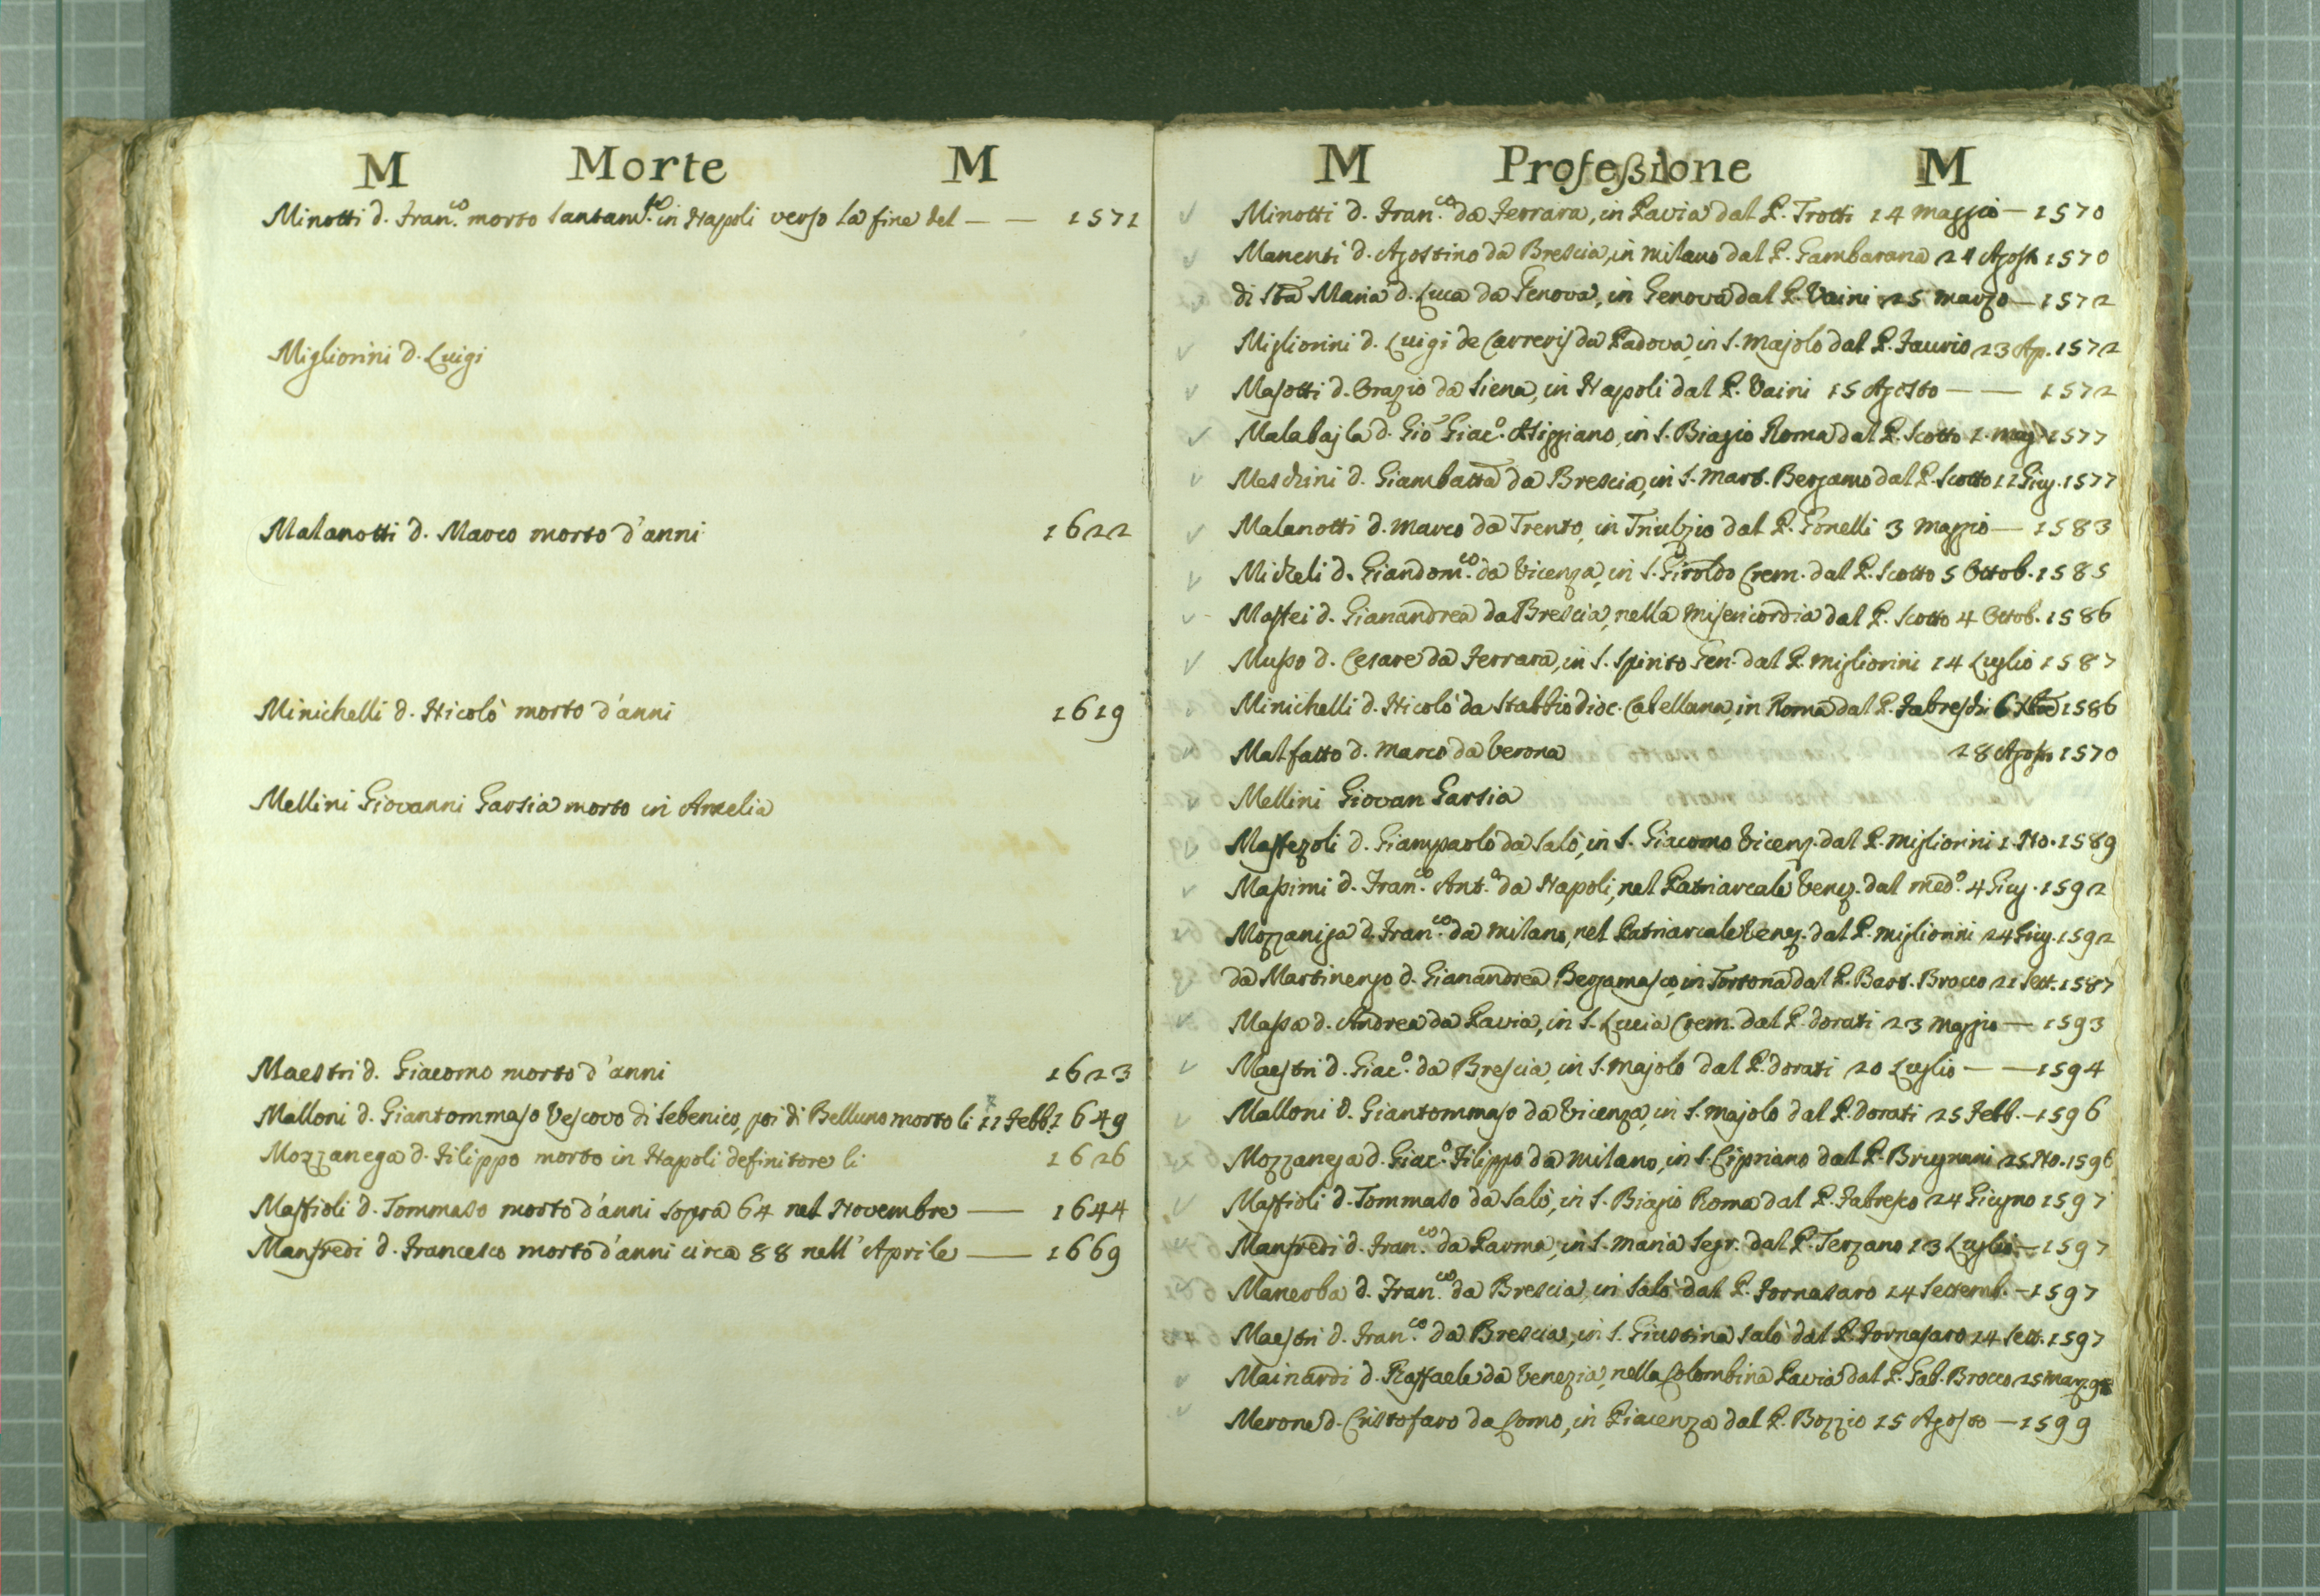 M Morte M
Minotti d. Fran.co morto santam.te in Napoli verso la fine del — — 1571
Migliorini d. Luigi
Malanotti d. Marco morto d'anni 1622
Minichelli d. Nicolò morto d'anni 1619
Mellini Giovanni Garsia morto in Amelia
Maestri d. Giacomo morto d'anni 1623
Malloni d. Giantommaso Vescovo di Sebenico, poi di Belluno morto li 11 Febb. 1649
Mozzanega d. Filippo morto in Napoli definitore li 1626
Maffioli d. Tommaso morto d'anni sopra 64 nel Novembre — 1644
Manfredi d. Francesco morto d'anni circa 88 nell'Aprile — 1669
M Professione M
Minotti d. Fran.co da Ferrara, in Pavia dal P. Trotti 14 maggio — 1570
Manenti d. Agostino da Brescia, in milano dal P. Gambarana 24 Agosto 1570
di Sta Maria d. Luca da Genova, in Genova dal P. Vaini 25 marzo — 1572
Migliorini d. Luigi de Carreris da Padova, in S. Majolo dal P. Faurio 23 Ap. 1572
Masotti d. Orazio da Siena, in Napoli dal P. Vaini 15 Agosto — — 1572
Malabajla d. Gio Giac.o Astigiano, in S. Biagio Roma dal P. Scotto 1. mag. 1577
Meschini d. Giambatta da Brescia, in S. Mart. Bergamo dal P. Scotto 11 Giug. 1577
Malanotti d. Marco da Trento, in Triulzio dal P. Gonelli 3 maggio — 1583
Micheli d. Giandom.co da Vicenza, in S. Giroldo Crem. dal P. Scotto 5 Ottob. 1585
Maffei d. Gianandrea da Brescia, nella misericordia dal P. Scotto 4 Ottob. 1586
Musso d. Cesare da Ferrara, in S. Spirito Gen. dal P. Migliorini 14 Luglio 1587
Minichelli d. Nicolò da Stabbio dioc. Castellana, in Roma dal P. Fabreschi 6 1586
Malfatto d. Marco da Verona 28 Agosto 1570
Mellini Giovan Garsia
Maffezoli d. Giampaolo da Salò, in S. Giacomo Vicenz. dal P. Migliorini 1. No. 1589
Massimi d. Fran.co Ant.o da Napoli, nel Patriarcale Venez. dal med.o 4 Giug. 1592
Mozzaniga d. Fran.co da Milano, nel Patriarcale Venez. dal P. Migliorini 24 Giug. 1592
da Martinengo d. Gianandrea Bergamasco, in Tortona dal P. Bart. Brocco 21 Sett. 1587
Massa d. Andrea da Pavia, in S. Lucia Crem. dal P. dorati 23 Maggio — 1593
Maestri d. Giac.o da Brescia, in S. Majolo dal P. dorati 20 Luglio — — 1594
Malloni d. Giantommaso da Vicenza, in S. Majolo dal P. Dorati 25 Febb. — 1596
Mozzanega d. Giac.o Filippo da milano, in S. Cipriano dal P. Brugnani 25 No. 1596
Maffioli d. Tommaso da Salò, in S. Biagio Roma dal P. Fabresco 24 Giugno 1597
Manfredi d. Fran.co da Parma, in S. Maria Segr. dal P. Terzano 13 Luglio — 1597
Manerba d. Fran.co da Brescia, in Salò dal P. Fornasaro 14 Settemb. — 1597
Maestri d. Fran.co da Brescia, in S. Giustina Salò dal P. Fornasaro 14 Sett. 1597
Mainardi d. Raffaele da Venezia, nella Colombina Pavia dal P. Gab. Brocco 25 Marz.
Merone d. Cristofaro da Como, in Piacenza dal P. Bozzio 15 Agosto — 1599